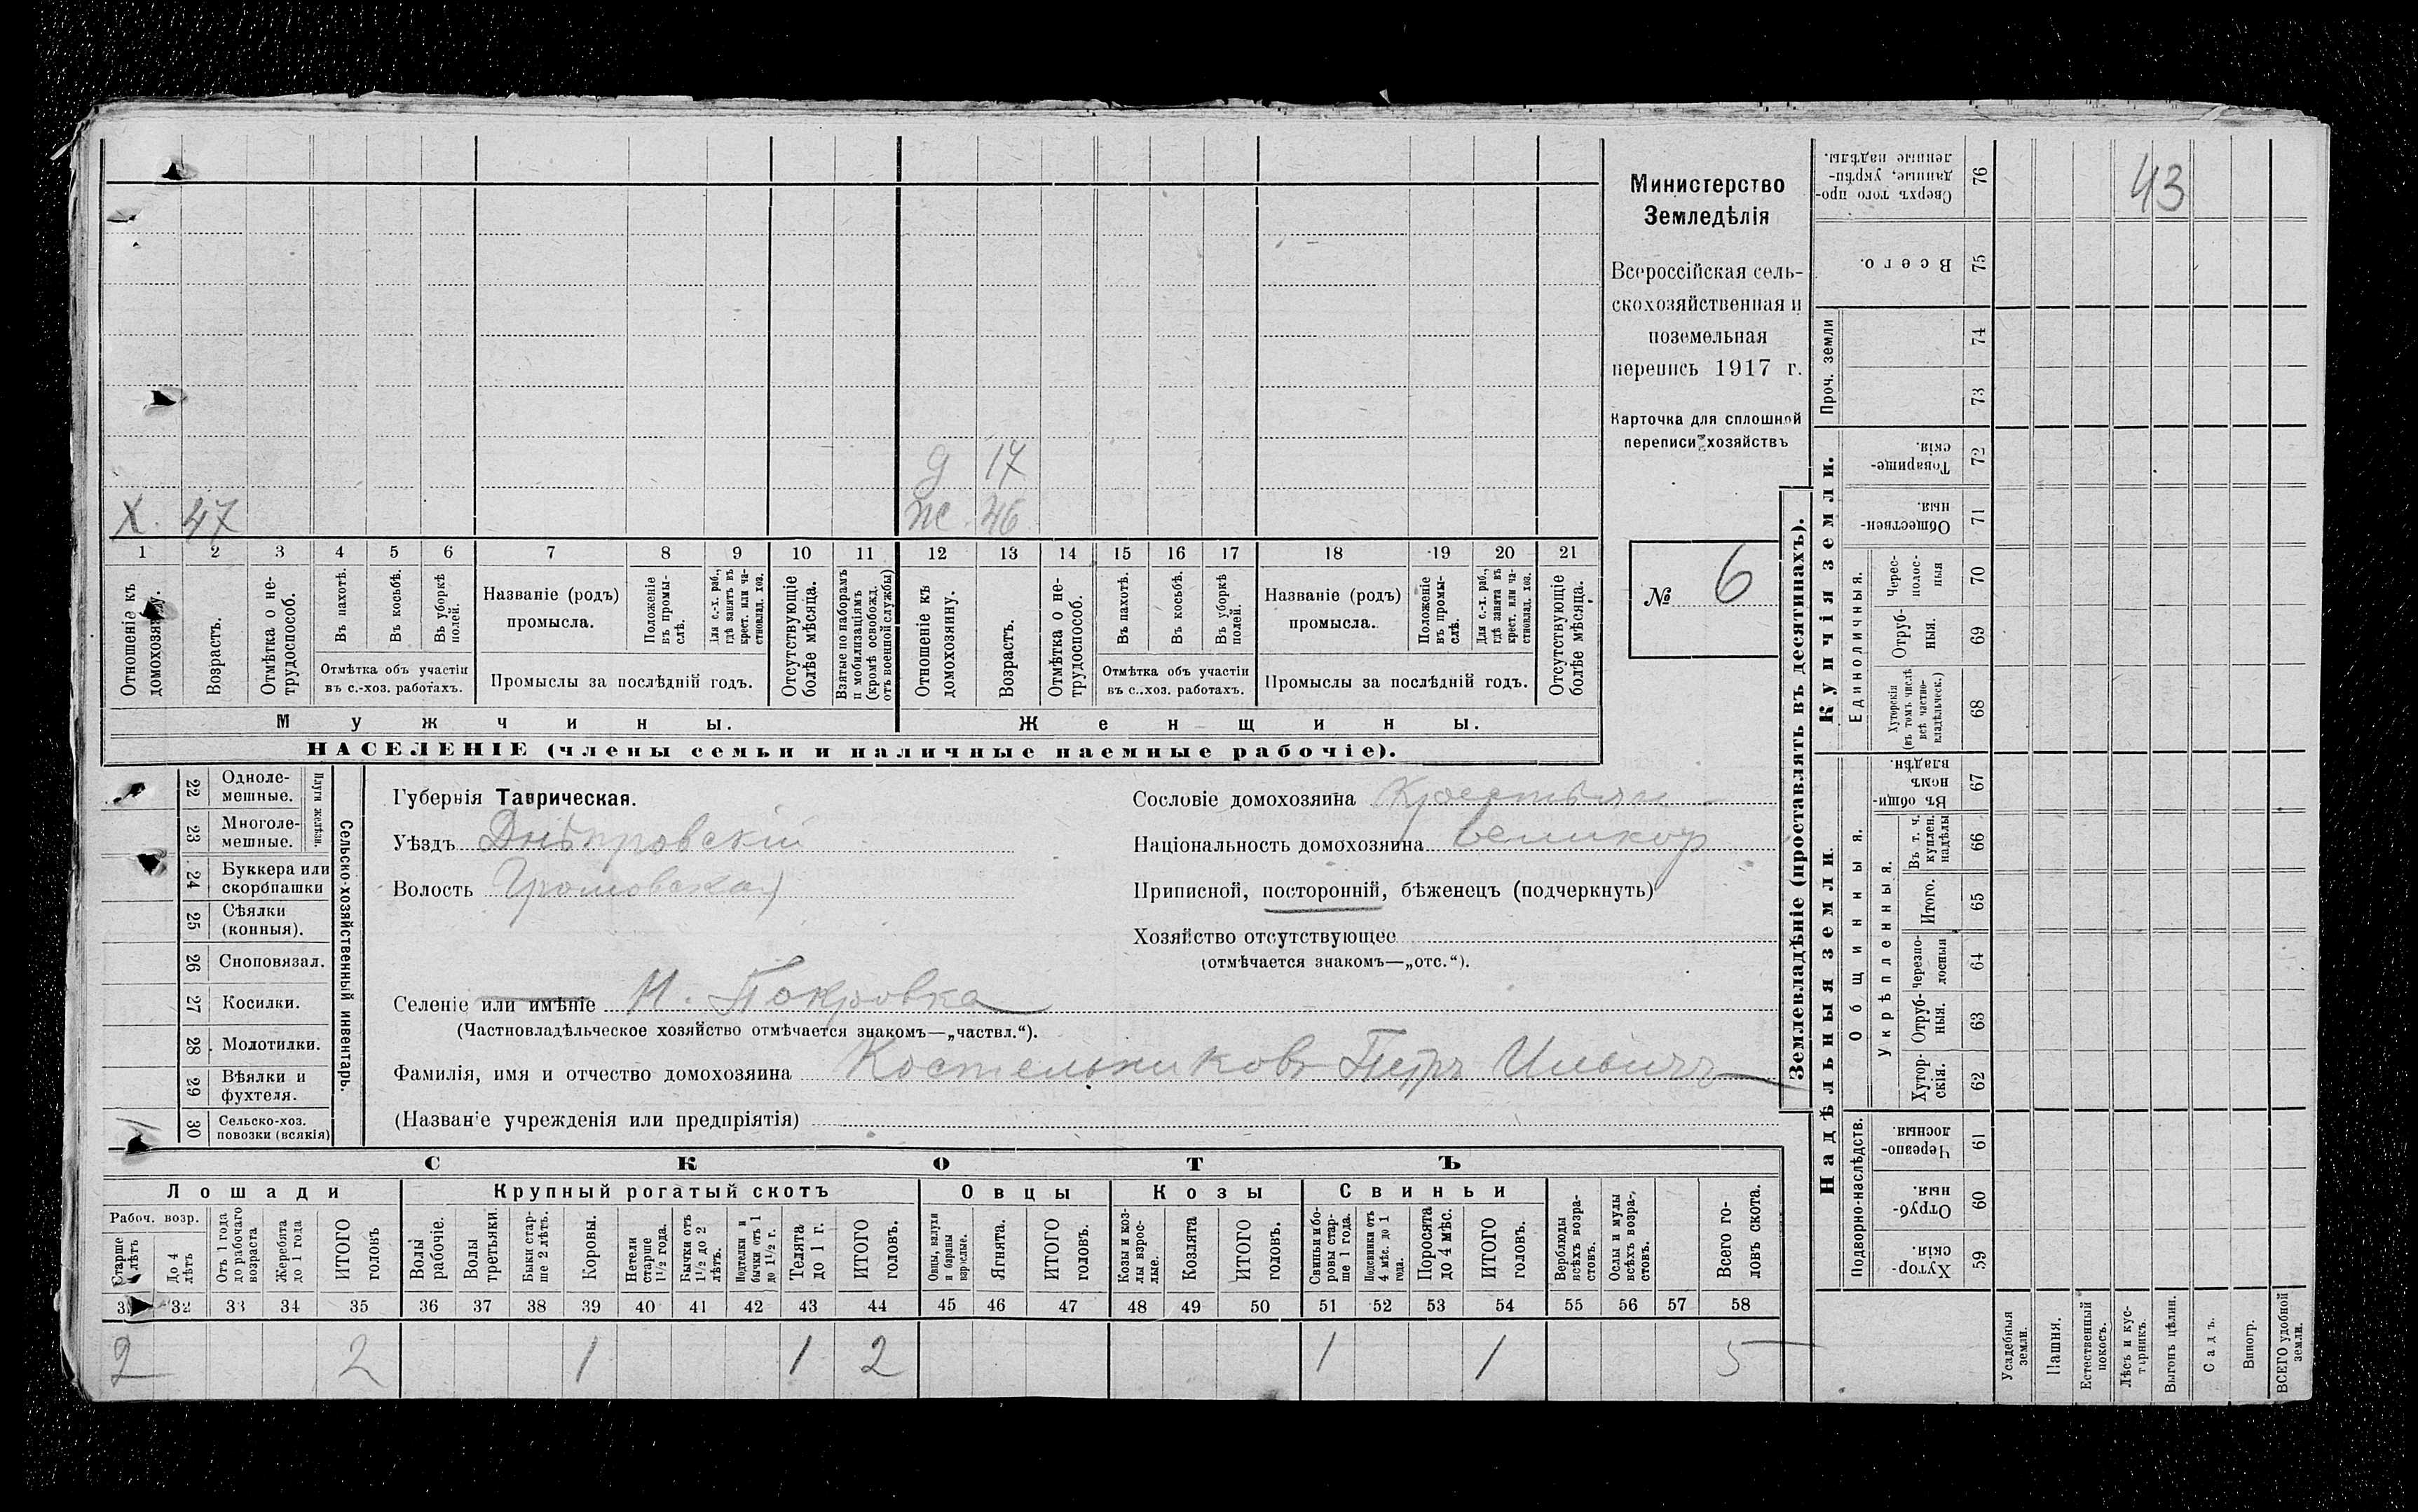 43
Министерство
Земледѣлія
Всероссійская сель-
скохозяйственная и
поземельная
перепись 1917 г.
Карточка для сплошной
переписи хозяйствъ
№ 6
д 17
Х. 47 ж. 46
1 2 3 4 5 6 7 8 9 10 11 12 13 14 15 16 17 18 19 20 21
Отношеніе къ домохозяину.
Возрастъ.
Отмѣтка о не-трудоспособ.
Въ пахотѣ.
Въ косьбѣ.
Въ уборкѣ полей.
Отмѣтка объ участіи
въ с.-хоз. работахъ.
Названіе (родъ)
промысла.
Положеніе въ промы-слѣ.
Для с.-х. раб., гдѣ занятъ въ крест. или ча-стновлад. хоз.
Промыслы за послѣдній годъ.
Отсутствующіе болѣе мѣсяца.
Взятые по наборамъ и мобилизаціямъ (кромѣ освобожд. отъ военной службы)
Отношеніе къ домохозяину.
Возрастъ.
Отмѣтка о не-трудоспособ.
Въ пахотѣ.
Въ косьбѣ.
Въ уборкѣ полей.
Отмѣтка объ участіи
въ с..хоз. работахъ.
Названіе (родъ)
промысла.
Положеніе въ промы-слѣ.
Для с.-х. раб., гдѣ занята въ крест. или ча-стновлад. хоз.
Промыслы за послѣдній годъ.
Отсутствующіе болѣе мѣсяца.
Мужчины. Женщины.
НАСЕЛЕНІЕ (члены семьи и наличные наемные рабочіе).
22 Одноле-мешные.
23 Многоле-мешные.
Плуги желѣзн.
24 Буккера или скоропашки
25 Сѣялки (конныя).
26 Сноповязал.
27 Косилки.
28 Молотилки.
29 Вѣялки и фухтеля.
30 Сельско-хоз. повозки (всякія)
1
Сельско-хозяйственный инвентарь.
Губернія Таврическая.
Уѣздъ Днѣпровскій
Волость Громовская
Сословіе домохозяина Крестьян
Національность домохозяина великор
Приписной, посторонній, бѣженецъ (подчеркнуть)
Хозяйство отсутствующее
(отмѣчается знакомъ—„отс.“).
Селеніе или имѣніе Н. Покровка
(Частновладѣльческое хозяйство отмѣчается знакомъ—„частвл.“).
Фамилія, имя и отчество домохозяина Костельниковъ Петръ Ильичъ
(Названіе учрежденія или предпріятія)
СКОТЪ
Лошади Крупный рогатый скотъ Овцы Козы Свиньи
Рабоч. возр.
Старше 4 лѣтъ
До 4 лѣтъ
Отъ 1 года до рабочаго возраста
Жеребята до 1 года
ИТОГО головъ
Волы рабочіе.
Волы третьяки.
Быки стар-ше 2 лѣтъ.
Коровы.
Нетели старше 1½ года.
Бычки отъ 1½ до 2 лѣтъ.
Подтелки и бычки отъ 1 до 1½ г.
Телята до 1 г.
ИТОГО головъ.
Овцы, валухи и бараны взрослые.
Ягнята.
ИТОГО головъ.
Козы и коз-лы взрос-лые.
Козлята
ИТОГО головъ.
Свиньи и бо-ровы стар-ше 1 года.
Подсвинки отъ 4 мѣс. до 1 года.
Поросята до 4 мѣс.
ИТОГО головъ.
Верблюды всѣхъ возра-стовъ.
Ослы и мулы всѣхъ возра-стовъ.
Всего го-ловъ скота.
31 32 33 34 35 36 37 38 39 40 41 42 43 44 45 46 47 48 49 50 51 52 53 54 55 56 57 58
2 2 1 1 2 1 1 5
Землевладѣніе (проставлять въ десятинахъ).
Надѣльныя земли.
Купчія земли.
Проч. земли
Подворно-наслѣдств.
Общинныя.
Укрѣпленныя.
Единоличныя.
76 Сверхъ того про-данные, укрѣп-ленные надѣлы.
75 Всего.
74
73
72 Товарище-скія.
71 Обществен-ныя.
70 Черес-полос-ныя
69 Отруб-ныя.
68 Хуторскія (въ томъ числѣ всѣ частно-владѣльческ.)
67 Въ общин-номъ владѣн.
66 Въ т. ч. куплен. надѣлы
65 Итого.
64 Черезпо-лосныя
63 Отруб-ныя.
62 Хутор-скія.
61 Черезпо-лосныя.
60 Отруб-ныя.
59 Хутор-скія.
Усадебныя земли.
Пашня.
Естественный покосъ.
Лѣсъ и кус-тарникъ.
Выгонъ цѣлин.
Садъ.
Виногр.
ВСЕГО удобной земли.